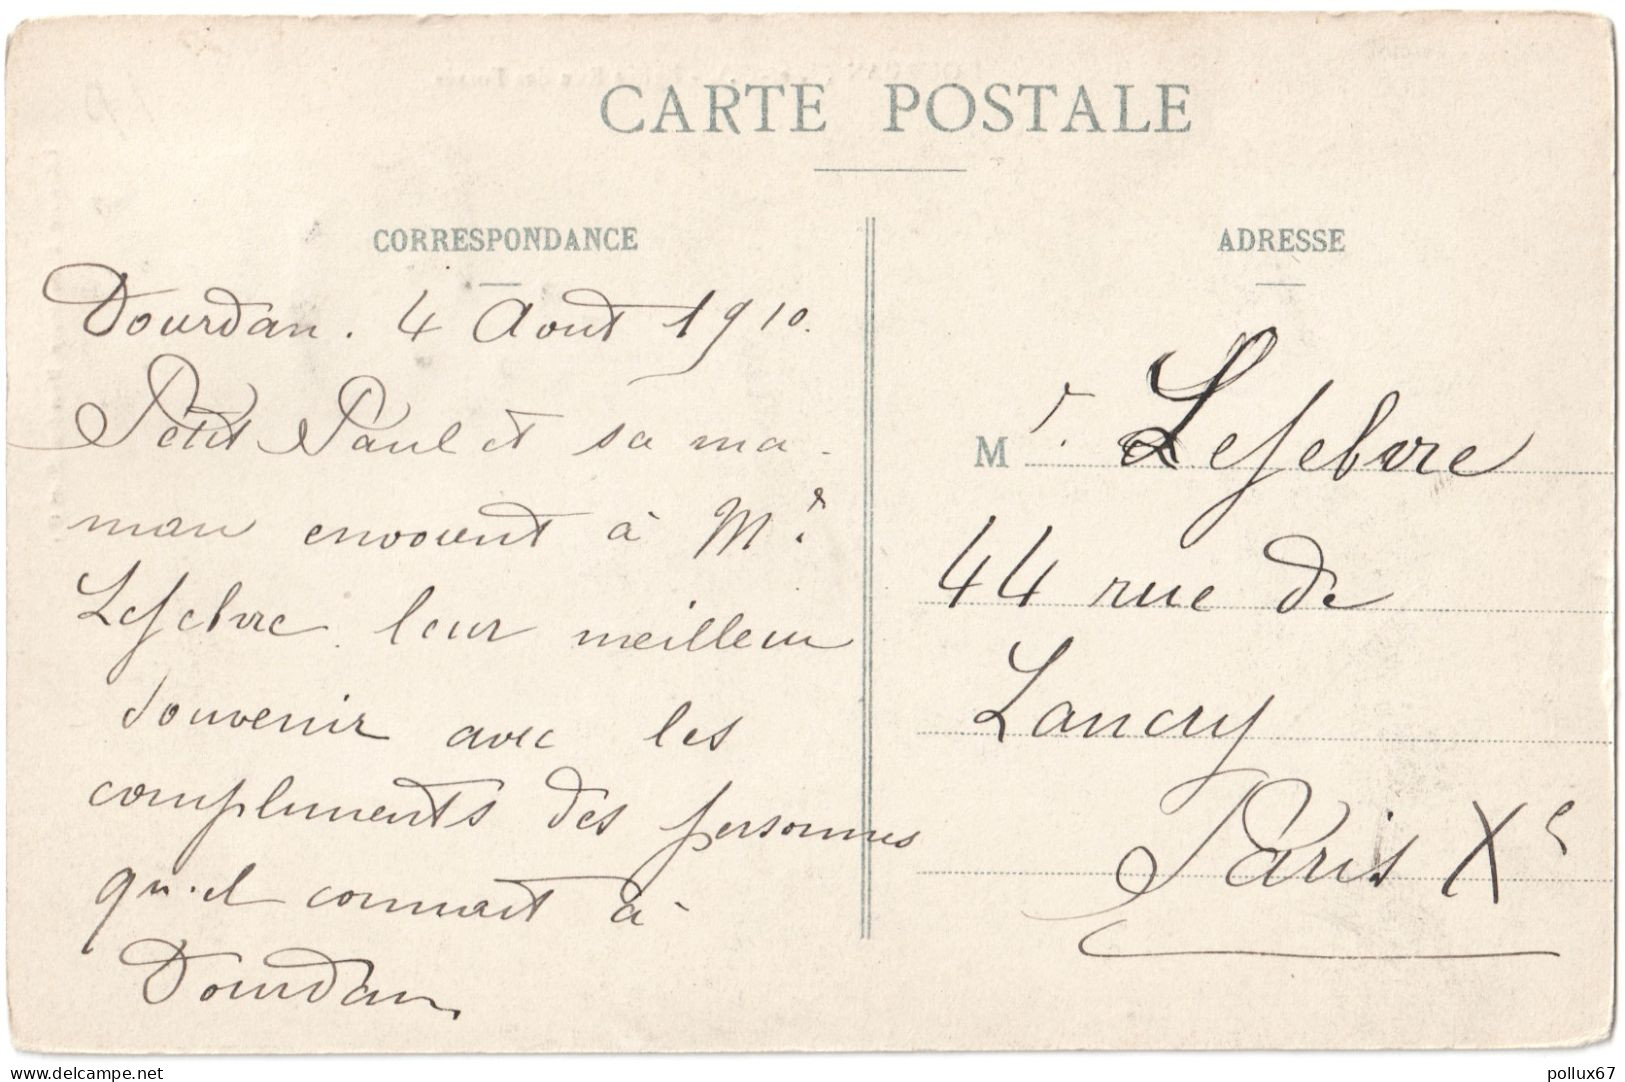 CARTE POSTALE
CORRESPONDANCE
Dourdan. 4 Aout 1910.
Petit Paul et sa ma-
man envoient à Mr.
Lefebvre leur meilleur
souvenir avec les
compliments des personnes
qu'il connait à
Dourdan.
ADRESSE
Mr. Lefebvre
44 rue de
Lancry
Paris Xe
www.delcampe.net
pollux67